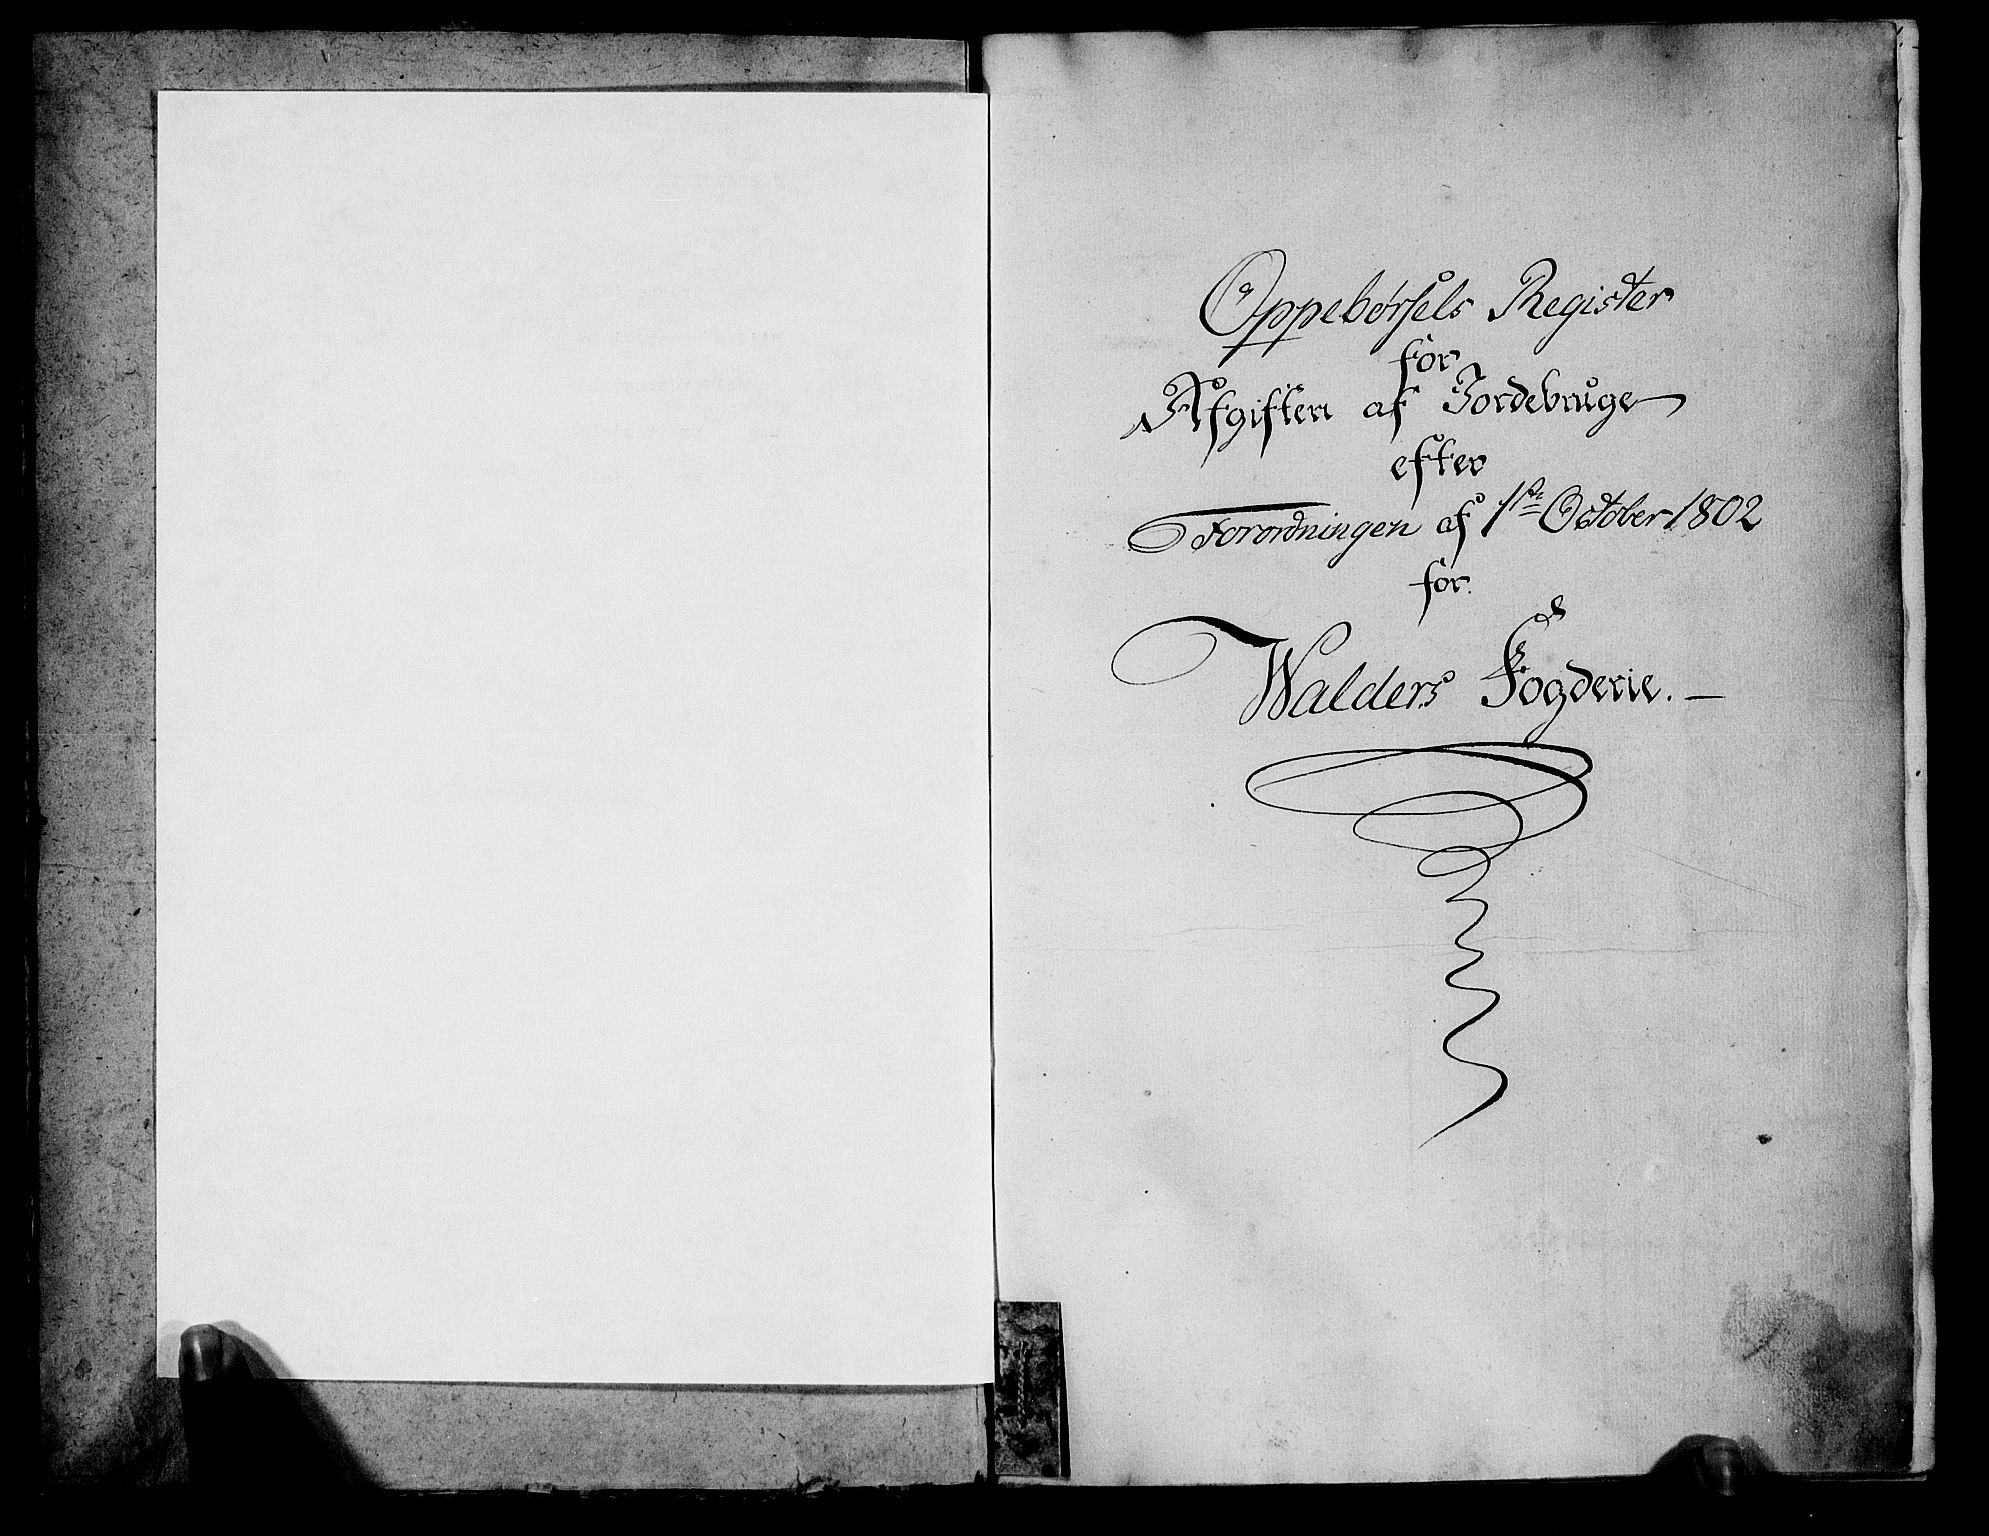 Oppebørsels Register
for
Afgiften af Jordebruge
efter
Forordningen af 1ste October 1802
for
Walders Fogderie. —